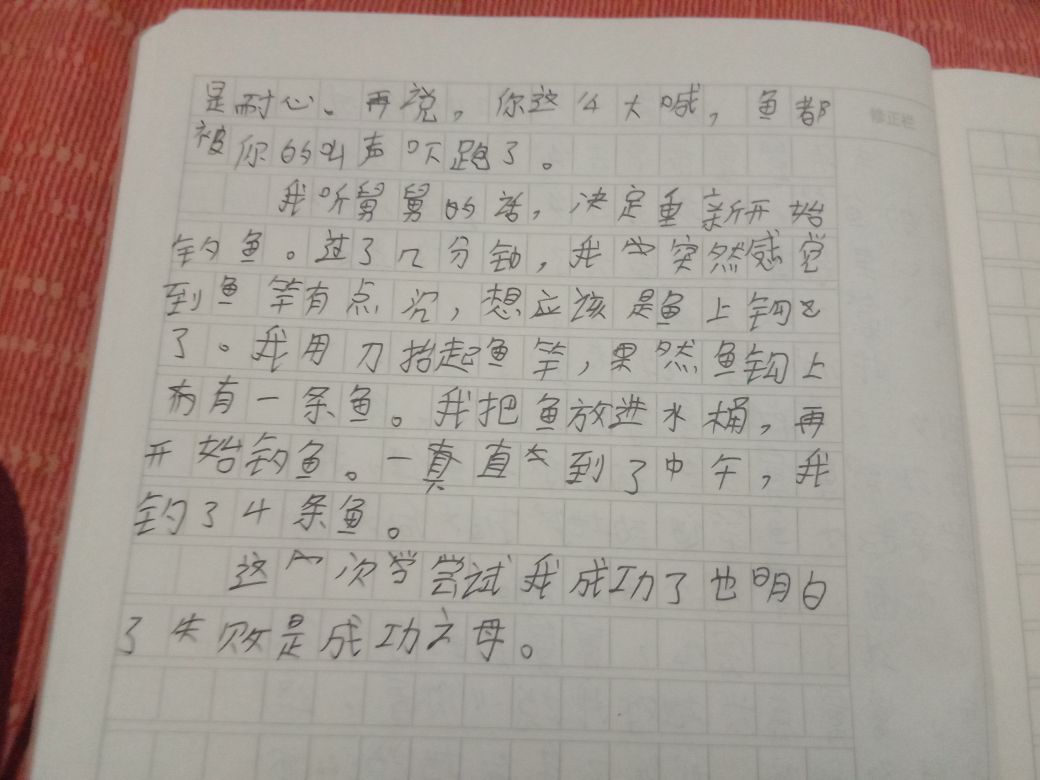 是耐心。再说，你这么大喊，鱼都
修正栏
被你的叫声吓跑了。
我听舅舅的话，决定重新开始
钓鱼。过了几分钟，我突然感觉
到鱼竿有点沉，想应该是鱼上钩
了。我用力抬起鱼竿，果然鱼钩上
有一条鱼。我把鱼放进水桶，再
开始钓鱼。一直到了中午，我
钓了4条鱼。
这次尝试我成功了也明白
了失败是成功之母。